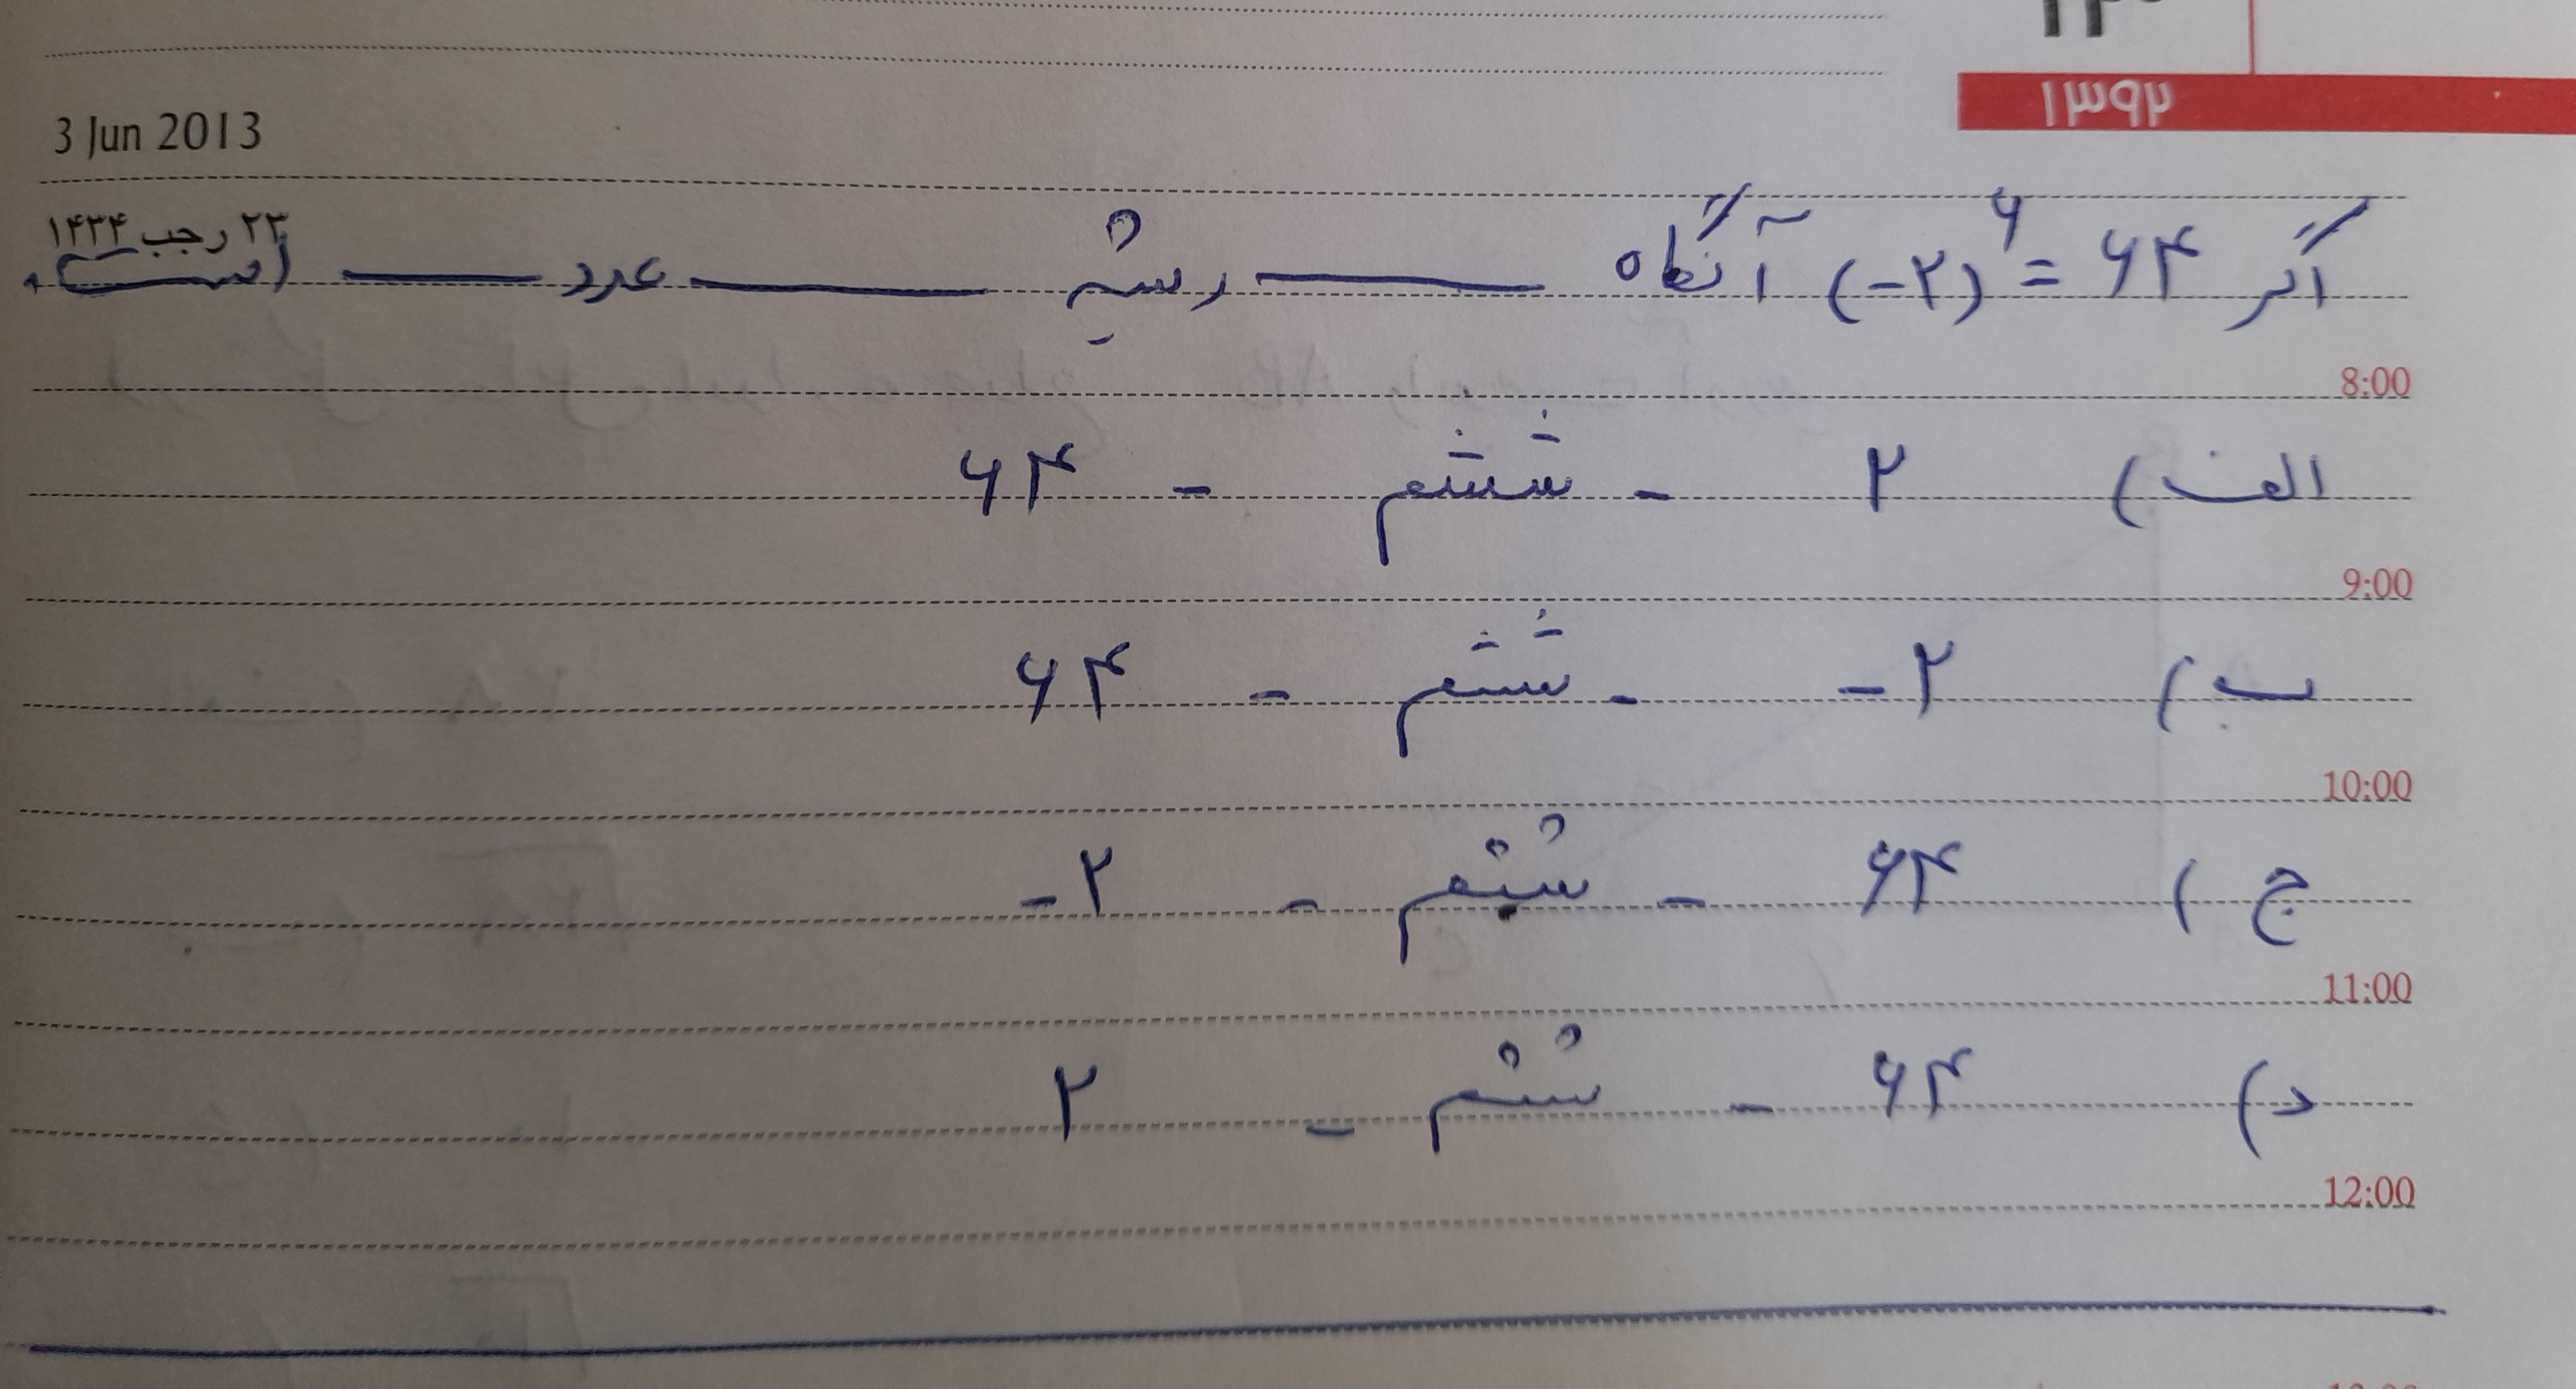 ۱۳۹۲
3 Jun 2013
۲۳ رجب ۱۴۳۴
اگر ۶۴ = (-۲)^۶ آنگاه ــــــ ریشهٔ ــــــ عدد ــــــ است.
8:00
الف) ۲ - ششم - ۶۴
9:00
ب) -۲ - ششم - ۶۴
10:00
ج) ۶۴ - ششم - -۲
11:00
د) ۶۴ - ششم - ۲
12:00